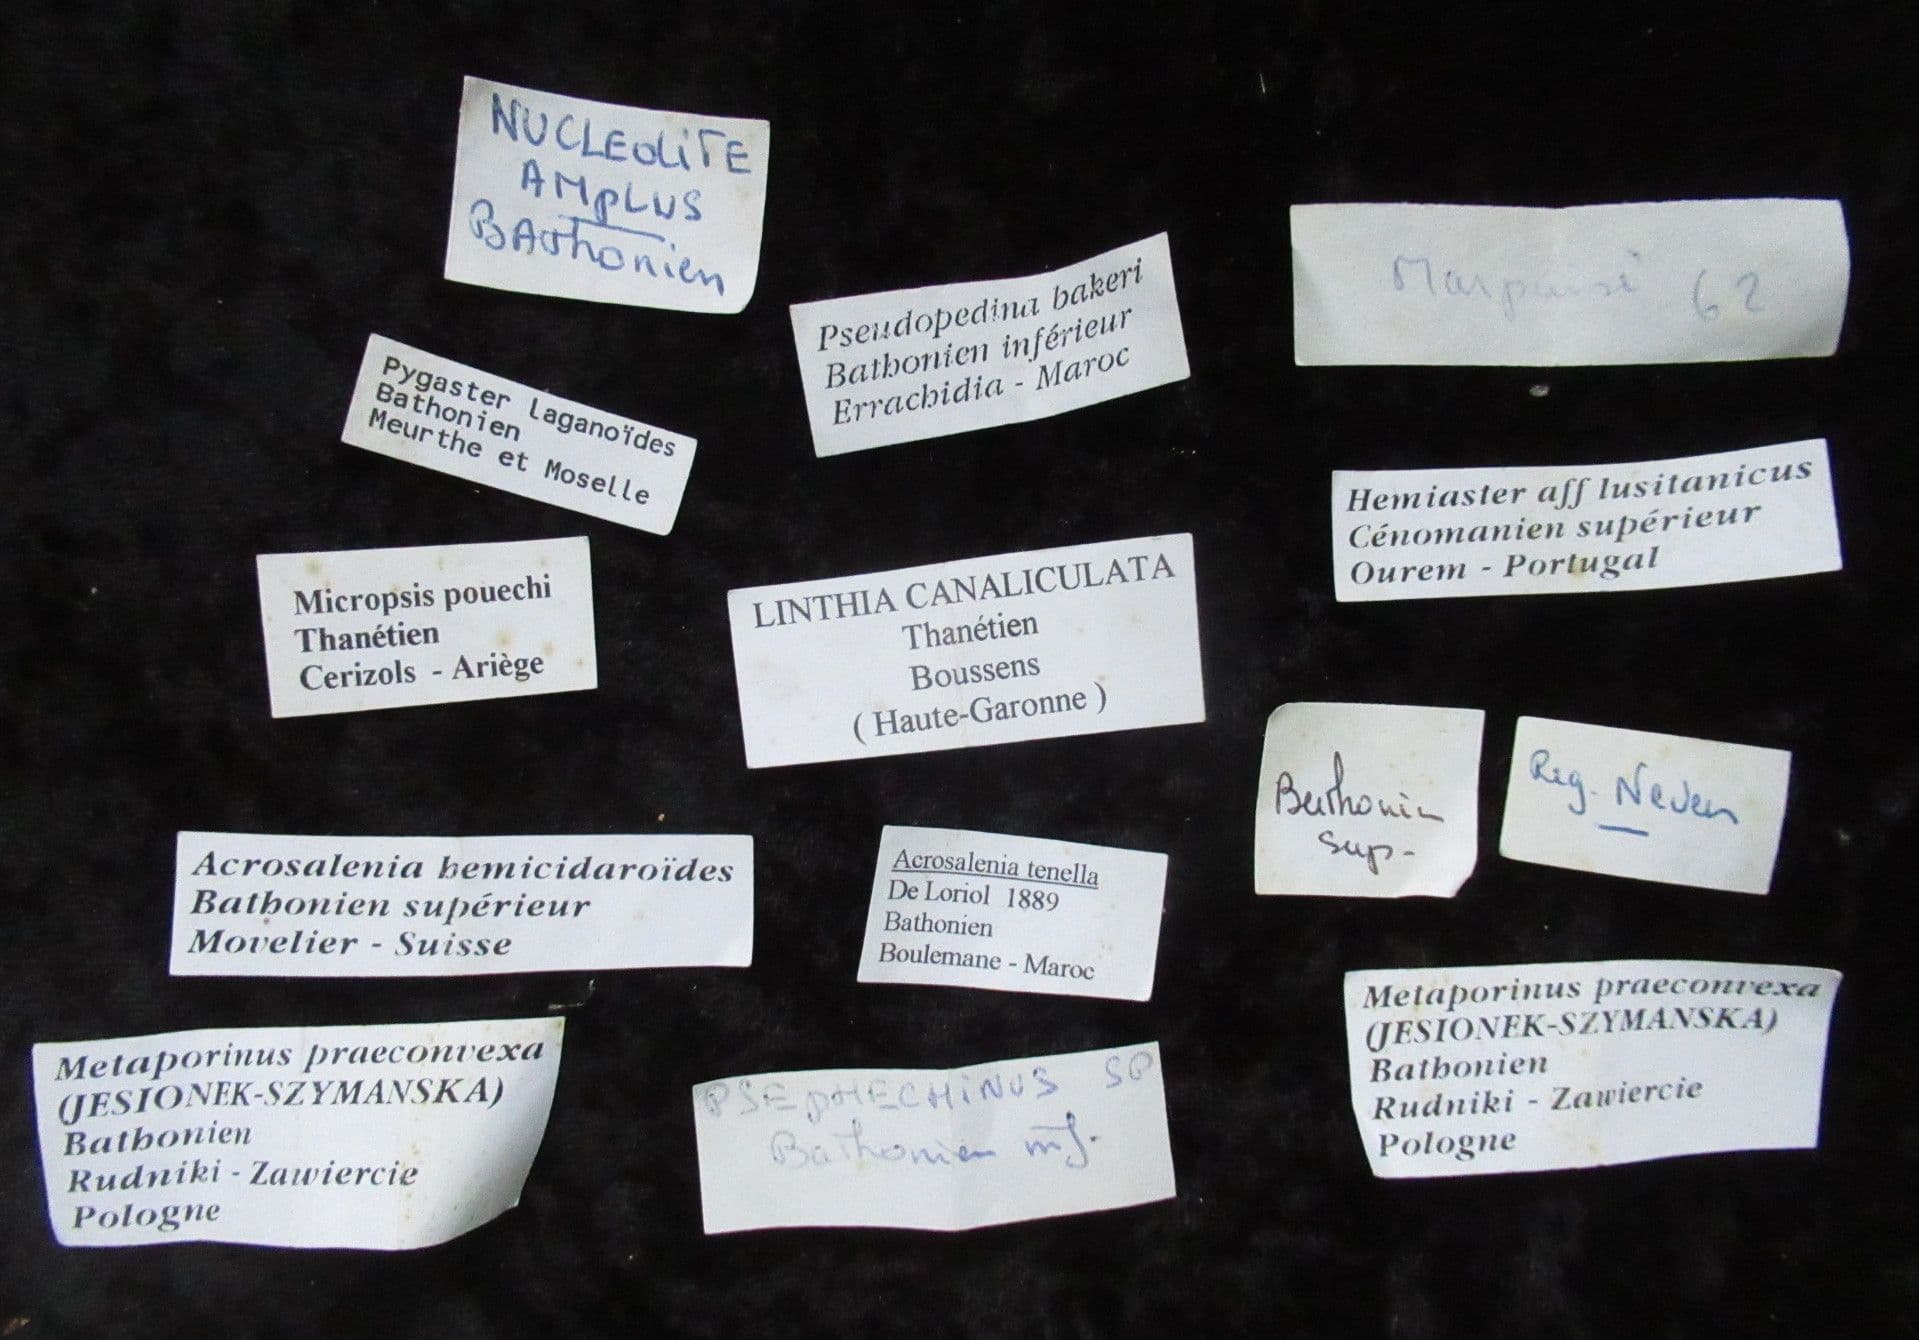 NUCLEOLITE
AMPLUS
BAthonien
Pseudopedina bakeri
Bathonien inférieur
Errachidia - Maroc
62
Pygaster laganoïdes
Bathonien
Meurthe et Moselle
Hemiaster aff lusitanicus
Cénomanien supérieur
Ourem - Portugal
Micropsis pouechi
Thanétien
Cerizols - Ariège
LINTHIA CANALICULATA
Thanétien
Boussens
( Haute-Garonne )
Sup.
Reg.
Acrosalenia hemicidaroïdes
Bathonien supérieur
Movelier - Suisse
Acrosalenia tenella
De Loriol 1889
Bathonien
Boulemane - Maroc
Metaporinus praeconvexa
(JESIONEK-SZYMANSKA)
Bathonien
Rudniki - Zawiercie
Pologne
PSEpHECHiNUS SP
Bathonien
Metaporinus praeconvexa
(JESIONEK-SZYMANSKA)
Bathonien
Rudniki - Zawiercie
Pologne